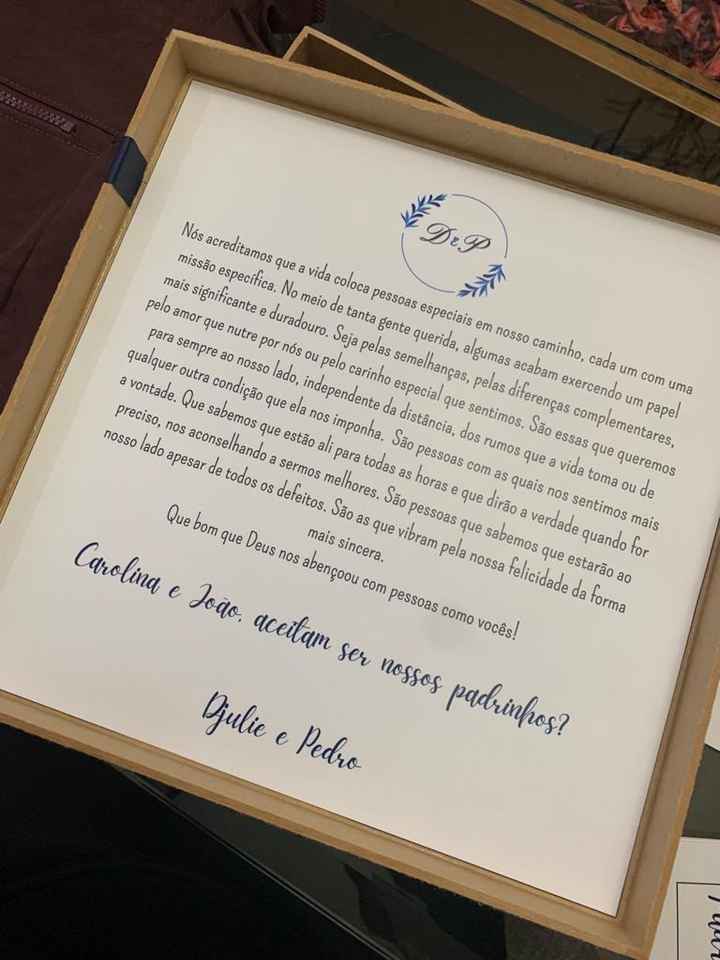 D&P
Nós acreditamos que a vida coloca pessoas especiais em nosso caminho, cada um com uma
missão específica. No meio de tanta gente querida, algumas acabam exercendo um papel
mais significante e duradouro. Seja pelas semelhanças, pelas diferenças complementares,
pelo amor que nutre por nós ou pelo carinho especial que sentimos. São essas que queremos
para sempre ao nosso lado, independente da distância, dos rumos que a vida toma ou de
qualquer outra condição que ela nos imponha. São pessoas com as quais nos sentimos mais
a vontade. Que sabemos que estão ali para todas as horas e que dirão a verdade quando for
preciso, nos aconselhando a sermos melhores. São pessoas que sabemos que estarão ao
nosso lado apesar de todos os defeitos. São as que vibram pela nossa felicidade da forma
mais sincera.
Que bom que Deus nos abençoou com pessoas como vocês!
Carolina e João, aceitam ser nossos padrinhos?
Djulie e Pedro